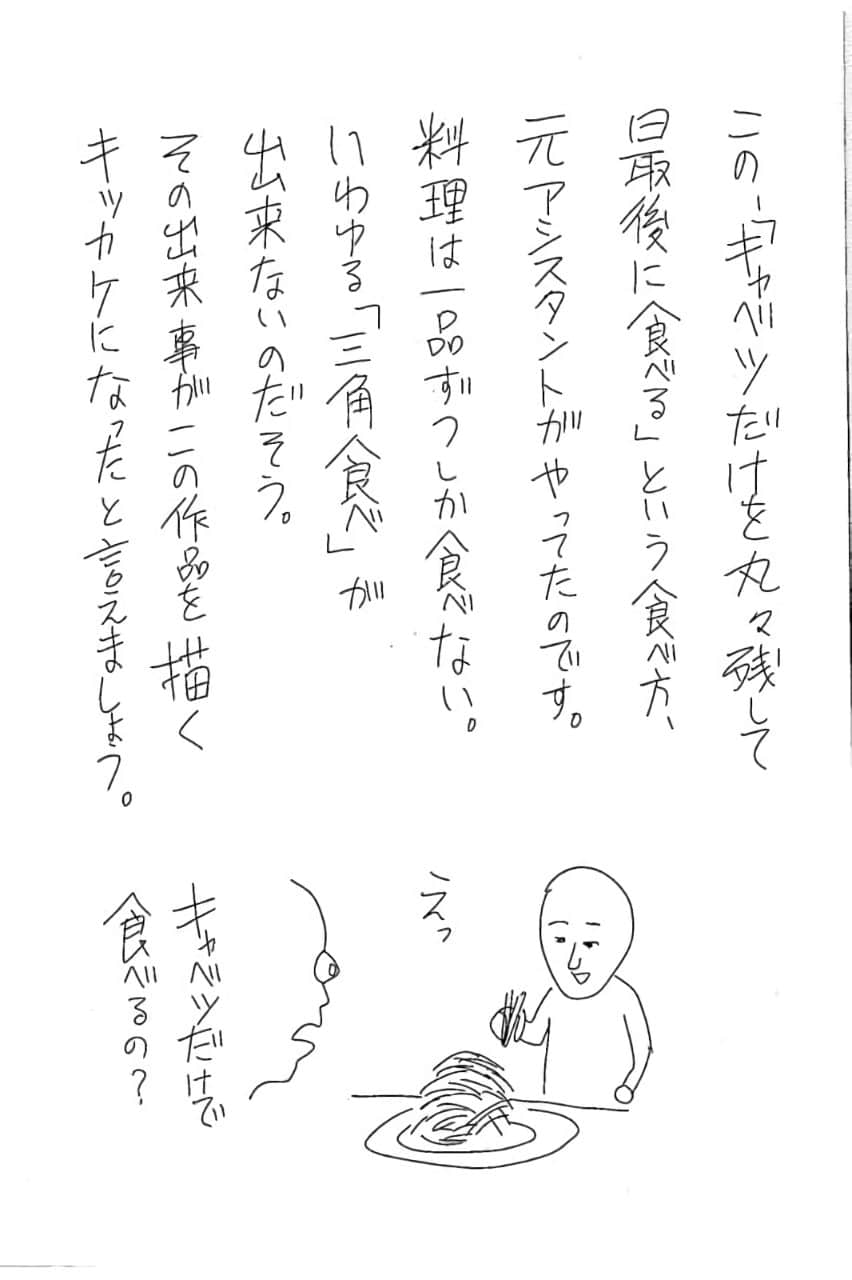 この「キャベツだけを丸々残して
最後に食べる」という食べ方、
元アシスタントがやってたのです。
料理は一品ずつしか食べない。
いわゆる「三角食べ」が
出来ないのだそう。
その出来事がこの作品を描く
キッカケになったと言えましょう。
えっ
キャベツだけで
食べるの？